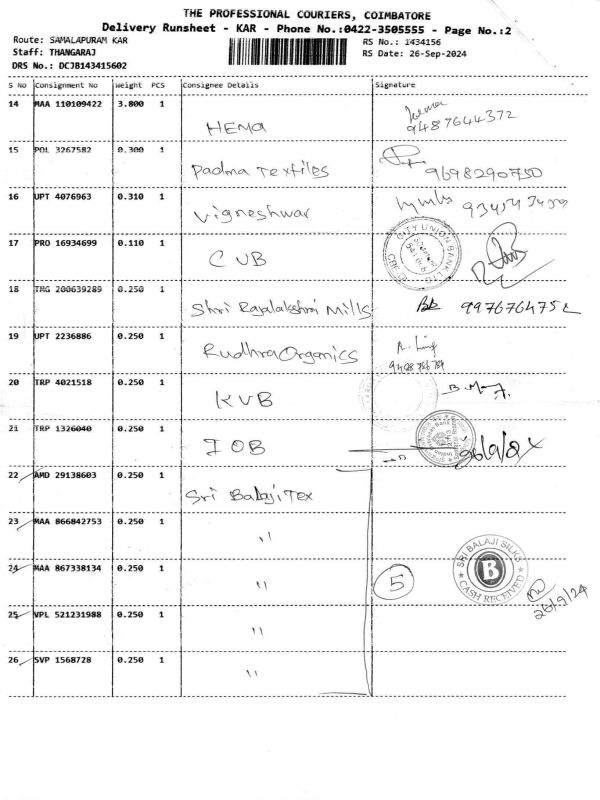 THE PROFESSIONAL COURIERS, COIMBATORE
Delivery Runsheet - KAR - Phone No.:0422-3505555 - Page No.:2
Route: SAMALAPURAM KAR
RS No.: 1434156
Staff: THANGARAJ
RS Date: 26-Sep-2024
DRS No.: DCJB143415602
S No Consignment No Weight PCS Consignee Details Signature
14 MAA 110109422 3.800 1 HEMA 9487644372
15 POL 3267582 0.300 1 Padma Textiles 9698290750
16 UPT 4076963 0.310 1 Vigneshwar
17 PRO 16934699 0.110 1 CUB
CITY UNION BANK LTD
18 TMG 200639289 0.250 1 Shri Rajalakshmi Mills 9976764752
19 UPT 2236886 0.250 1 Rudhra Organics
20 TRP 4021518 0.250 1 KVB
21 TRP 1326040 0.250 1 IOB
22 AMD 29138603 0.250 1 Sri Balaji Tex
23 MAA 866842753 0.250 1 "
24 MAA 867338134 0.250 1 " 5
SRI BALAJI SILKS
B
CASH RECEIVED
26/9/24
25 VPL 521231988 0.250 1 "
26 SVP 1568728 0.250 1 "